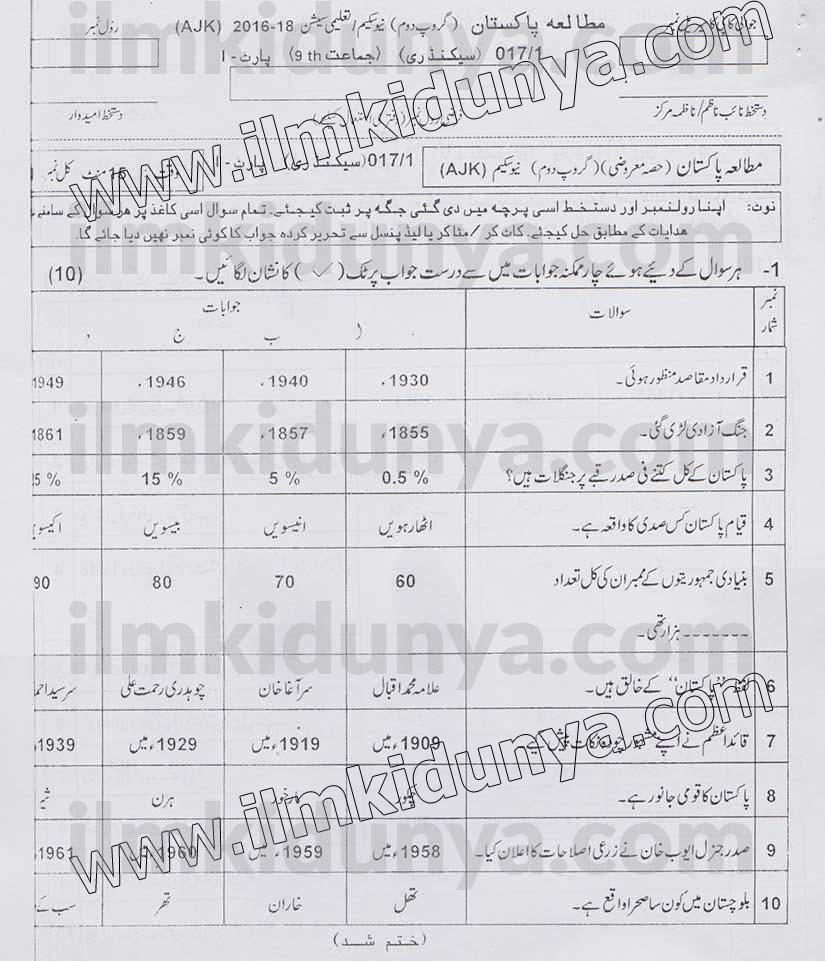 مطالعہ پاکستان (گروپ دوم) نیوسکیم / تعلیمی سیشن 18-2016 (AJK)
رول نمبر
017/1 (سیکنڈری) (جماعت 9th) پارٹ - I
دستخط نائب ناظم / ناظمہ مرکز
دستخط امیدوار
مطالعہ پاکستان (حصہ معروضی) (گروپ دوم) نیوسکیم (AJK)
017/1 (سیکنڈری) پارٹ - I
وقت 15 منٹ کل نمبر
نوٹ: اپنا رولنمبر اور دستخط اسی پرچہ میں دی گئی جگہ پر ثبت کیجئے۔ تمام سوال اسی کاغذ پر ہر سوال کے سامنے
ھدایات کے مطابق حل کیجئے۔ کاٹ کر / مٹا کر یا لیڈ پنسل سے تحریر کردہ جواب کا کوئی نمبر نھیں دیا جائے گا۔
1- ہر سوال کے دیئے ہوئے چار ممکنہ جوابات میں سے درست جواب پر ٹک (✓) کا نشان لگائیں۔ (10)
نمبر شمار سوالات جوابات
ا ب ج د
1 قرارداد مقاصد منظور ہوئی۔ 1930ء 1940ء 1946ء 1949
2 جنگ آزادی لڑی گئی۔ 1855ء 1857ء 1859ء 1861
3 پاکستان کے کل کتنے فی صد رقبے پر جنگلات ہیں؟ 0.5 % 5 % 15 % 5 %
4 قیام پاکستان کس صدی کا واقعہ ہے۔ اٹھارہویں انیسویں بیسویں اکیسویں
5 بنیادی جمہوریتوں کے ممبران کی کل تعداد 60 70 80 90
------- ہزار تھی۔
6 لفظ "پاکستان" کے خالق ہیں۔ علامہ محمد اقبال سر آغا خان چوہدری رحمت علی سرسید احمد
7 قائد اعظم نے اپنے مشہور چودہ نکات پیش کیے 1909ء میں 1919ء میں 1929ء میں 1939ء
8 پاکستان کا قومی جانور ہے۔ چکور مارخور ہرن شیر
9 صدر جنرل ایوب خان نے زرعی اصلاحات کا اعلان کیا۔ 1958ء میں 1959ء میں 1960ء میں 1961ء
10 بلوچستان میں کون سا صحرا واقع ہے۔ تھل خاران تھر سب کے
(ختم شد)
www.ilmkidunya.com
www.ilmkidunya.com
ilmkidunya.com
ilmkidunya.com
ilmkidunya.com
ilmkidunya.com